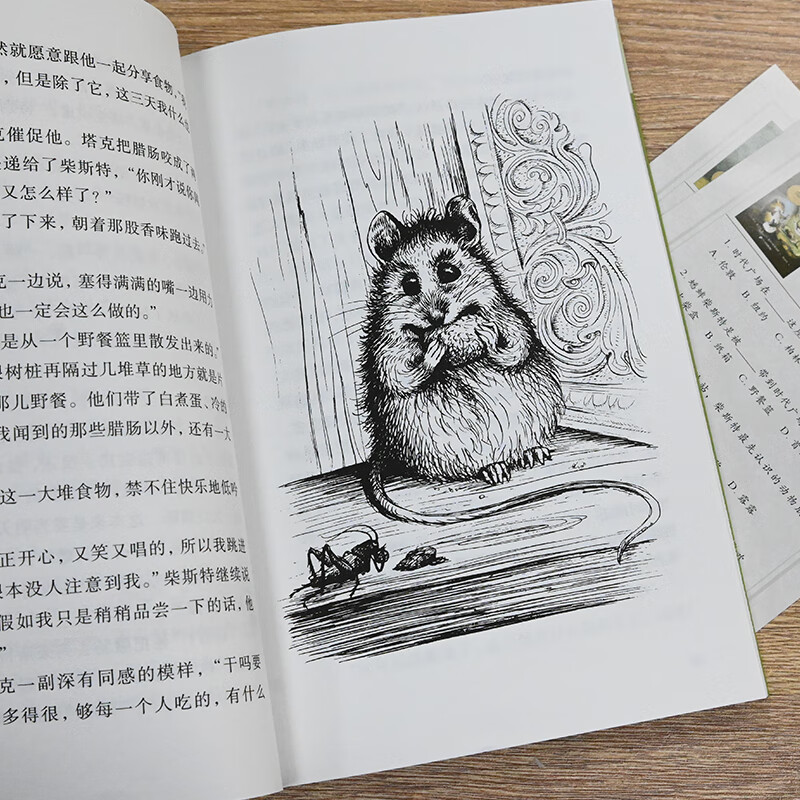 然就愿意跟他一起分享食物，
，但是除了它，这三天我什么
克催促他。塔克把腊肠咬成了
递给了柴斯特，“你刚才说你
又怎么样了？”
了下来，朝着那股香味跑过去。
克一边说，塞得满满的嘴一边用力
也一定会这么做的。”
是从一个野餐篮里散发出来的。”
树桩再隔过几堆草的地方就是片
那儿野餐。他们带了白煮蛋、冷的
我闻到的那些腊肠以外，还有一大
这一大堆食物，禁不住快乐地低吟
正开心，又笑又唱的，所以我跳进
根本没人注意到我。”柴斯特继续说
假如我只是稍稍品尝一下的话，他
”
克一副深有同感的模样，“干吗要
多得很，够每一个人吃的，有什么
1. 时代广场在
A. 伦敦 B. 纽约 C. 柏林
2. 蟋蟀柴斯特是被 带到时代广
火柴盒 B. 纸箱 C. 野餐篮 D.
站，柴斯特最先认识的动物朋
D. 露露
水